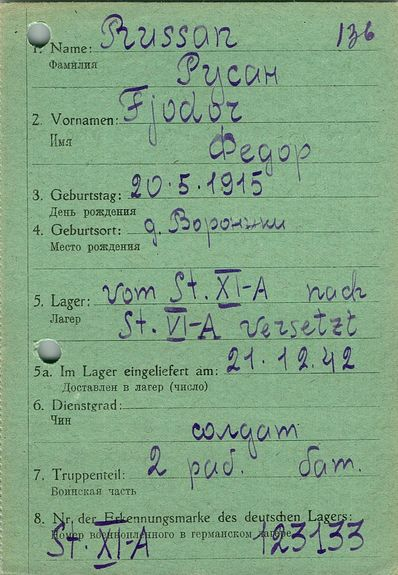 136
1. Name: Russan
Фамилия
Русан
2. Vornamen: Fjodor
Имя
Федор
3. Geburtstag: 20.5.1915
День рождения
4. Geburtsort: д. Воронжи
Место рождения
5. Lager: vom St. XI-A nach
Лагер St. VI-A versetzt
5a. Im Lager eingeliefert am: 21.12.42
Доставлен в лагер (число)
6. Dienstgrad:
Чин
солдат
7. Truppenteil: 2 раб. бат.
Воинская часть
8. Nr. der Erkennungsmarke des deutschen Lagers:
Номер военнопленного в германском лагере
St. XI-A 123133